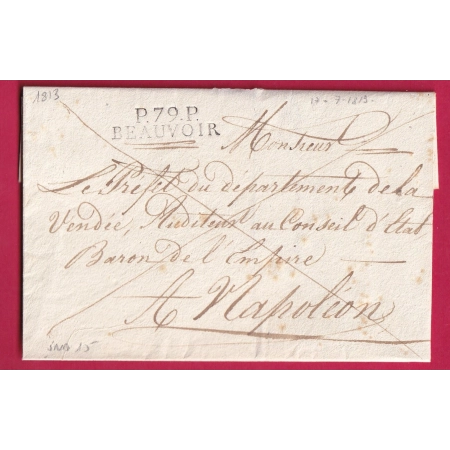 1813
17-7-1813.
P.79.P.
BEAUVOIR
Monsieur
Le Préfet du département de la
Vendée, Auditeur au Conseil d'Etat
Baron de l'Empire
A Napoléon